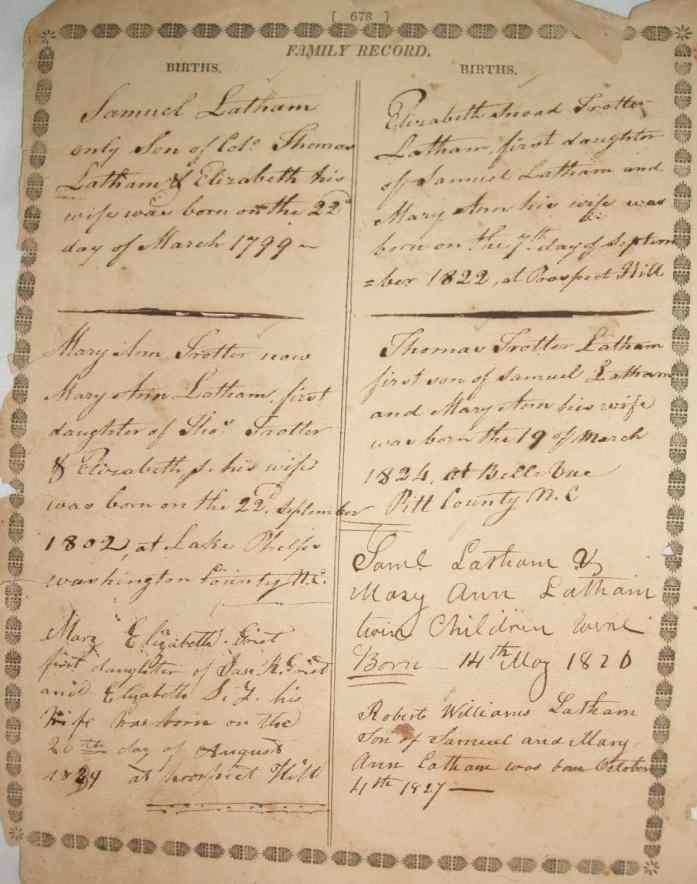 [ 678 ]
FAMILY RECORD.
BIRTHS.
Samuel Latham
only Son of Colo. Thomas
Latham & Elizabeth his
wife was born on the 22d
day of March 1799 –
Mary Ann Trotter now
Mary Ann Latham, first
daughter of Thos. Trotter
& Elizabeth S. his wife
was born on the 22d. September
1802, at Lake Phelps
Washington County N.C.
Mary Elizabeth Grist
first daughter of Jas. R. Grist
and Elizabeth S. T. his
Wife was born on the
20th day of August
at prospect Hill
BIRTHS.
Elizabeth Snoad Trotter
Latham, first daughter
of Samuel Latham and
Mary Ann his wife was
born on the 7th day of Septem
=ber 1822, at Prospect Hill
Thomas Trotter Latham
first son of Samuel Latham
and Mary Ann his wife
was born the 19 of March
1824, at Belle Vue
Pitt County N.C
Saml. Latham &
Mary Ann Latham
twin Children were
Born – 14th May 1826
Robert Williams Latham
Son of Samuel and Mary
Ann Latham was born October
4th 1827 —